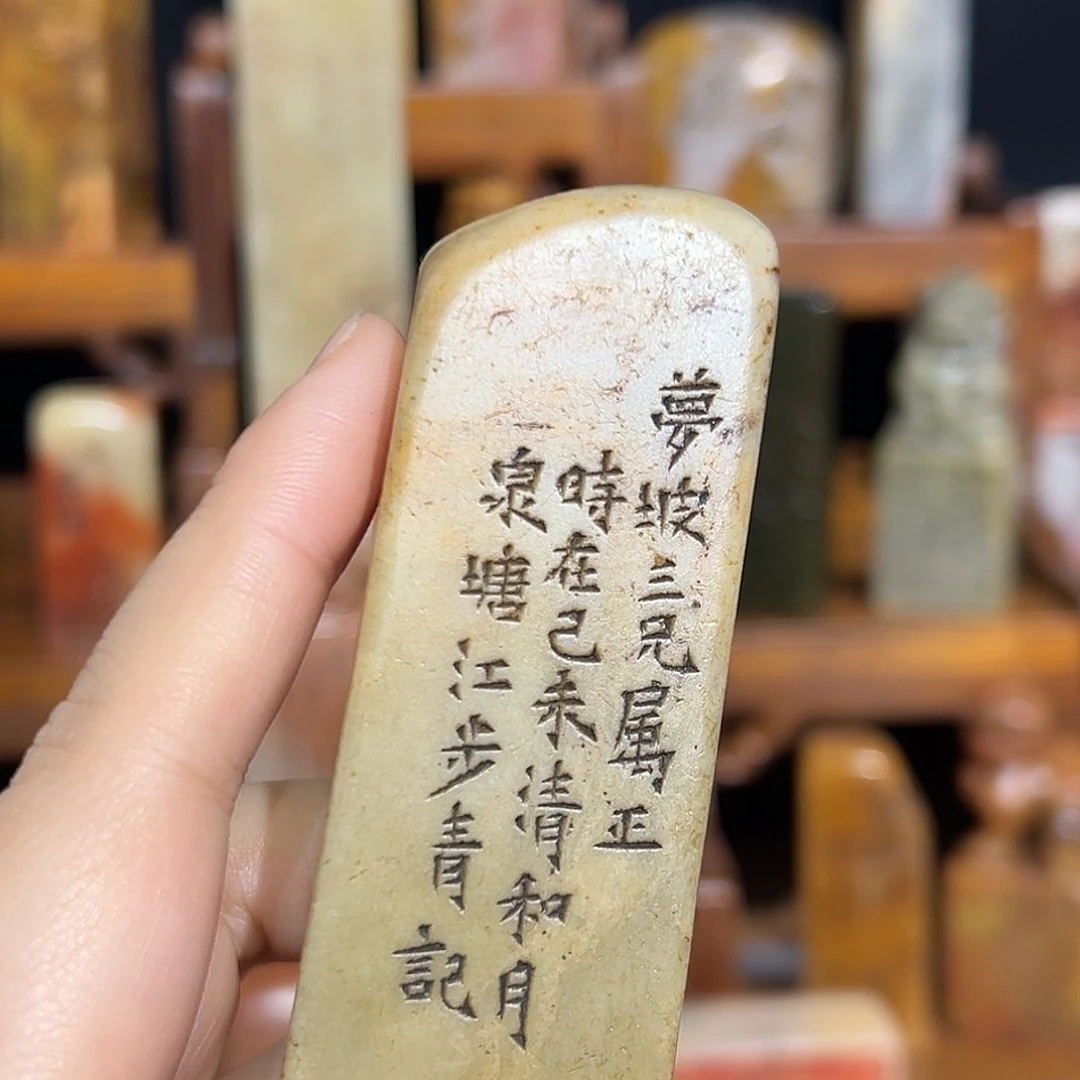 夢坡三兄属正
時在己未清和月
泉塘江步青記